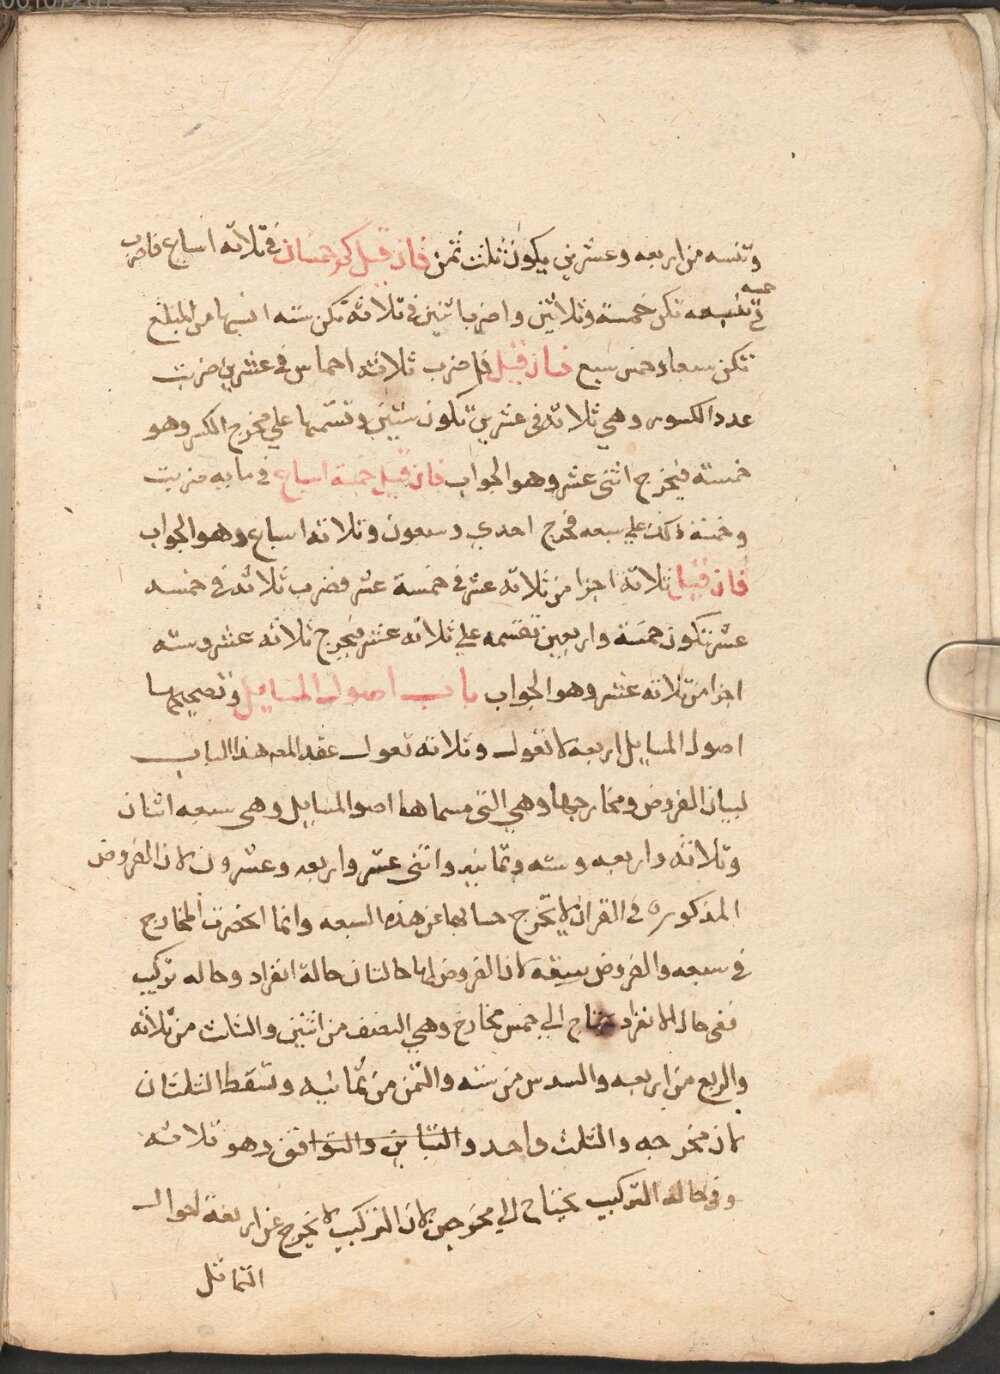 وتنسبه من اربعه وعشرين يكون ثلث ثمن فان قيل كم خمسان في ثلاثه اسباع فاضرب
خمسه
في سبعه تكن خمسة وثلاثين واضرب اثنين في ثلاثه تكن سته انسبها من المبلغ
تكن سبعا وخمس سبع فان قيل اضرب ثلاثه اخماس في عشرين ضربت
عدد الكسور وهي ثلاثه في عشرين تكون ستين وتقسمها علي مخرج الكسر وهو
خمسة فيخرج اثنى عشر وهو الجواب فان قيل خمسة اسباع في مايه ضربت
وخمسة ذلك علي سبعه فخرج احدي وسبعون وثلاثه اسباع وهو الجواب
فان قيل ثلاثة اجزا من ثلاثه عشر في خمسة عشر فضرب ثلاثه في خمسه
عشر تكون خمسة واربعين تقسمه علي ثلاثه عشر فيخرج ثلاثه عشر وسته
اجزا من ثلاثه عشر وهو الجواب باب اصول المسايل وتصحيحها
اصول المسايل اربعه لا تعول وثلاثه تعول عقد المص هذا الباب
لبيان الفروض ومخارجها وهي التي مسماها اصو المسايل وهي سبعه اثنان
وثلاثه واربعه وسته وثمانيه واثنى عشر واربعه وعشرون لان الفروض
المذكوره في القران لا تخرج حسابها عن هذه السبعه وانما انحصرت المخارج
في سبعه والفروض سته لان الفروض لها حالتان حالة انفراد وحاله تركيب
ففي حال الانفراد يحتاج الي خمس مخارج وهي النصف من اثنين والثلث من ثلاثه
والربع من اربعه والسدس من سته والثمن من ثمانيه وتسقط الثلثان
لان مخرجه والثلث واحد والتباين والتوافق وهو ثلاثه
وفي حالة التركيب يحتاج الي مخرجين لان التركيب لا يخرج عن اربعة احوال
التماثل